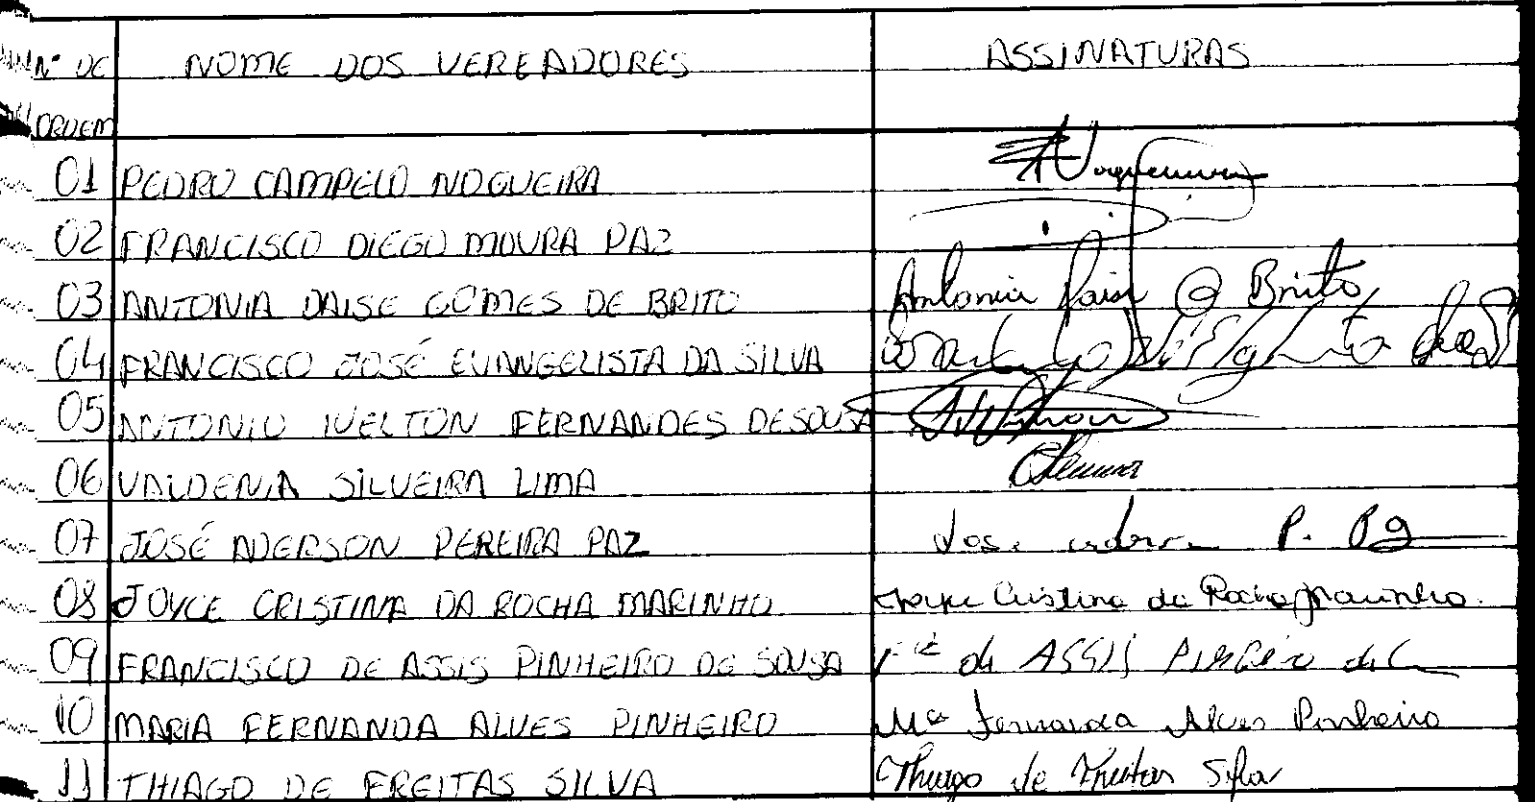 Nº DE NOME DOS VEREADORES ASSINATURAS
ORDEM
01 PEDRO CAMPELO NOGUEIRA
02 FRANCISCO DIEGO MOURA PAZ
03 ANTONIA DAISE GOMES DE BRITO Antonia Daise G Brito
04 FRANCISCO JOSÉ EVANGELISTA DA SILVA
05 ANTONIO IVELTON FERNANDES DE SOUSA
06 VALDENIA SILVEIRA LIMA
07 JOSÉ ADERSON PEREIRA PAZ José P. Pz
08 JOYCE CRISTINA DA ROCHA MARINHO Joyce Cristina da Rocha Marinho.
09 FRANCISCO DE ASSIS PINHEIRO DE SOUSA Fco de ASSIS PINHEIRO de
10 MARIA FERNANDA ALVES PINHEIRO Mª Fernanda Alves Pinheiro
11 THIAGO DE FREITAS SILVA Thiago de Freitas Silva